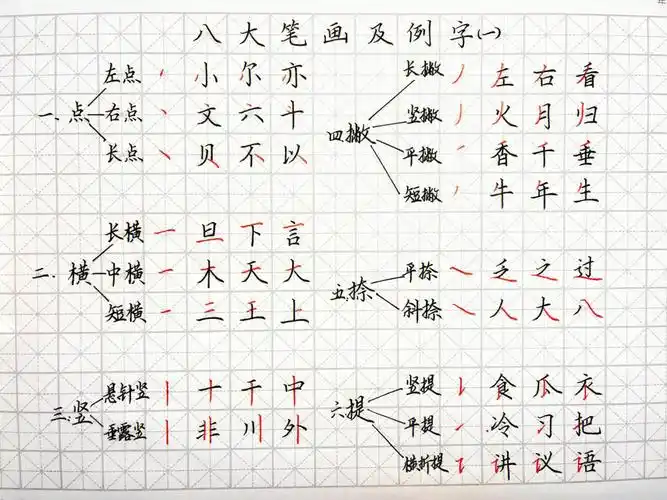 八大笔画及例字(一)
一、点
左点 小 尔 亦
右点 文 六 斗
长点 贝 不 以
二、横
长横 旦 下 言
中横 木 天 大
短横 三 王 上
三、竖
悬针竖 十 干 中
垂露竖 非 川 外
四、撇
长撇 左 右 看
竖撇 火 月 归
平撇 香 千 垂
短撇 牛 年 生
五、捺
平捺 乏 之 过
斜捺 人 大 八
六、提
竖提 食 瓜 衣
平提 冷 习 把
横折提 讲 议 语